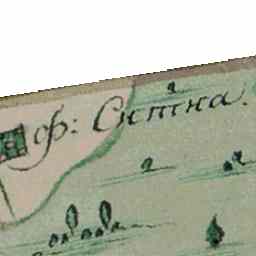 ф: Ситна.